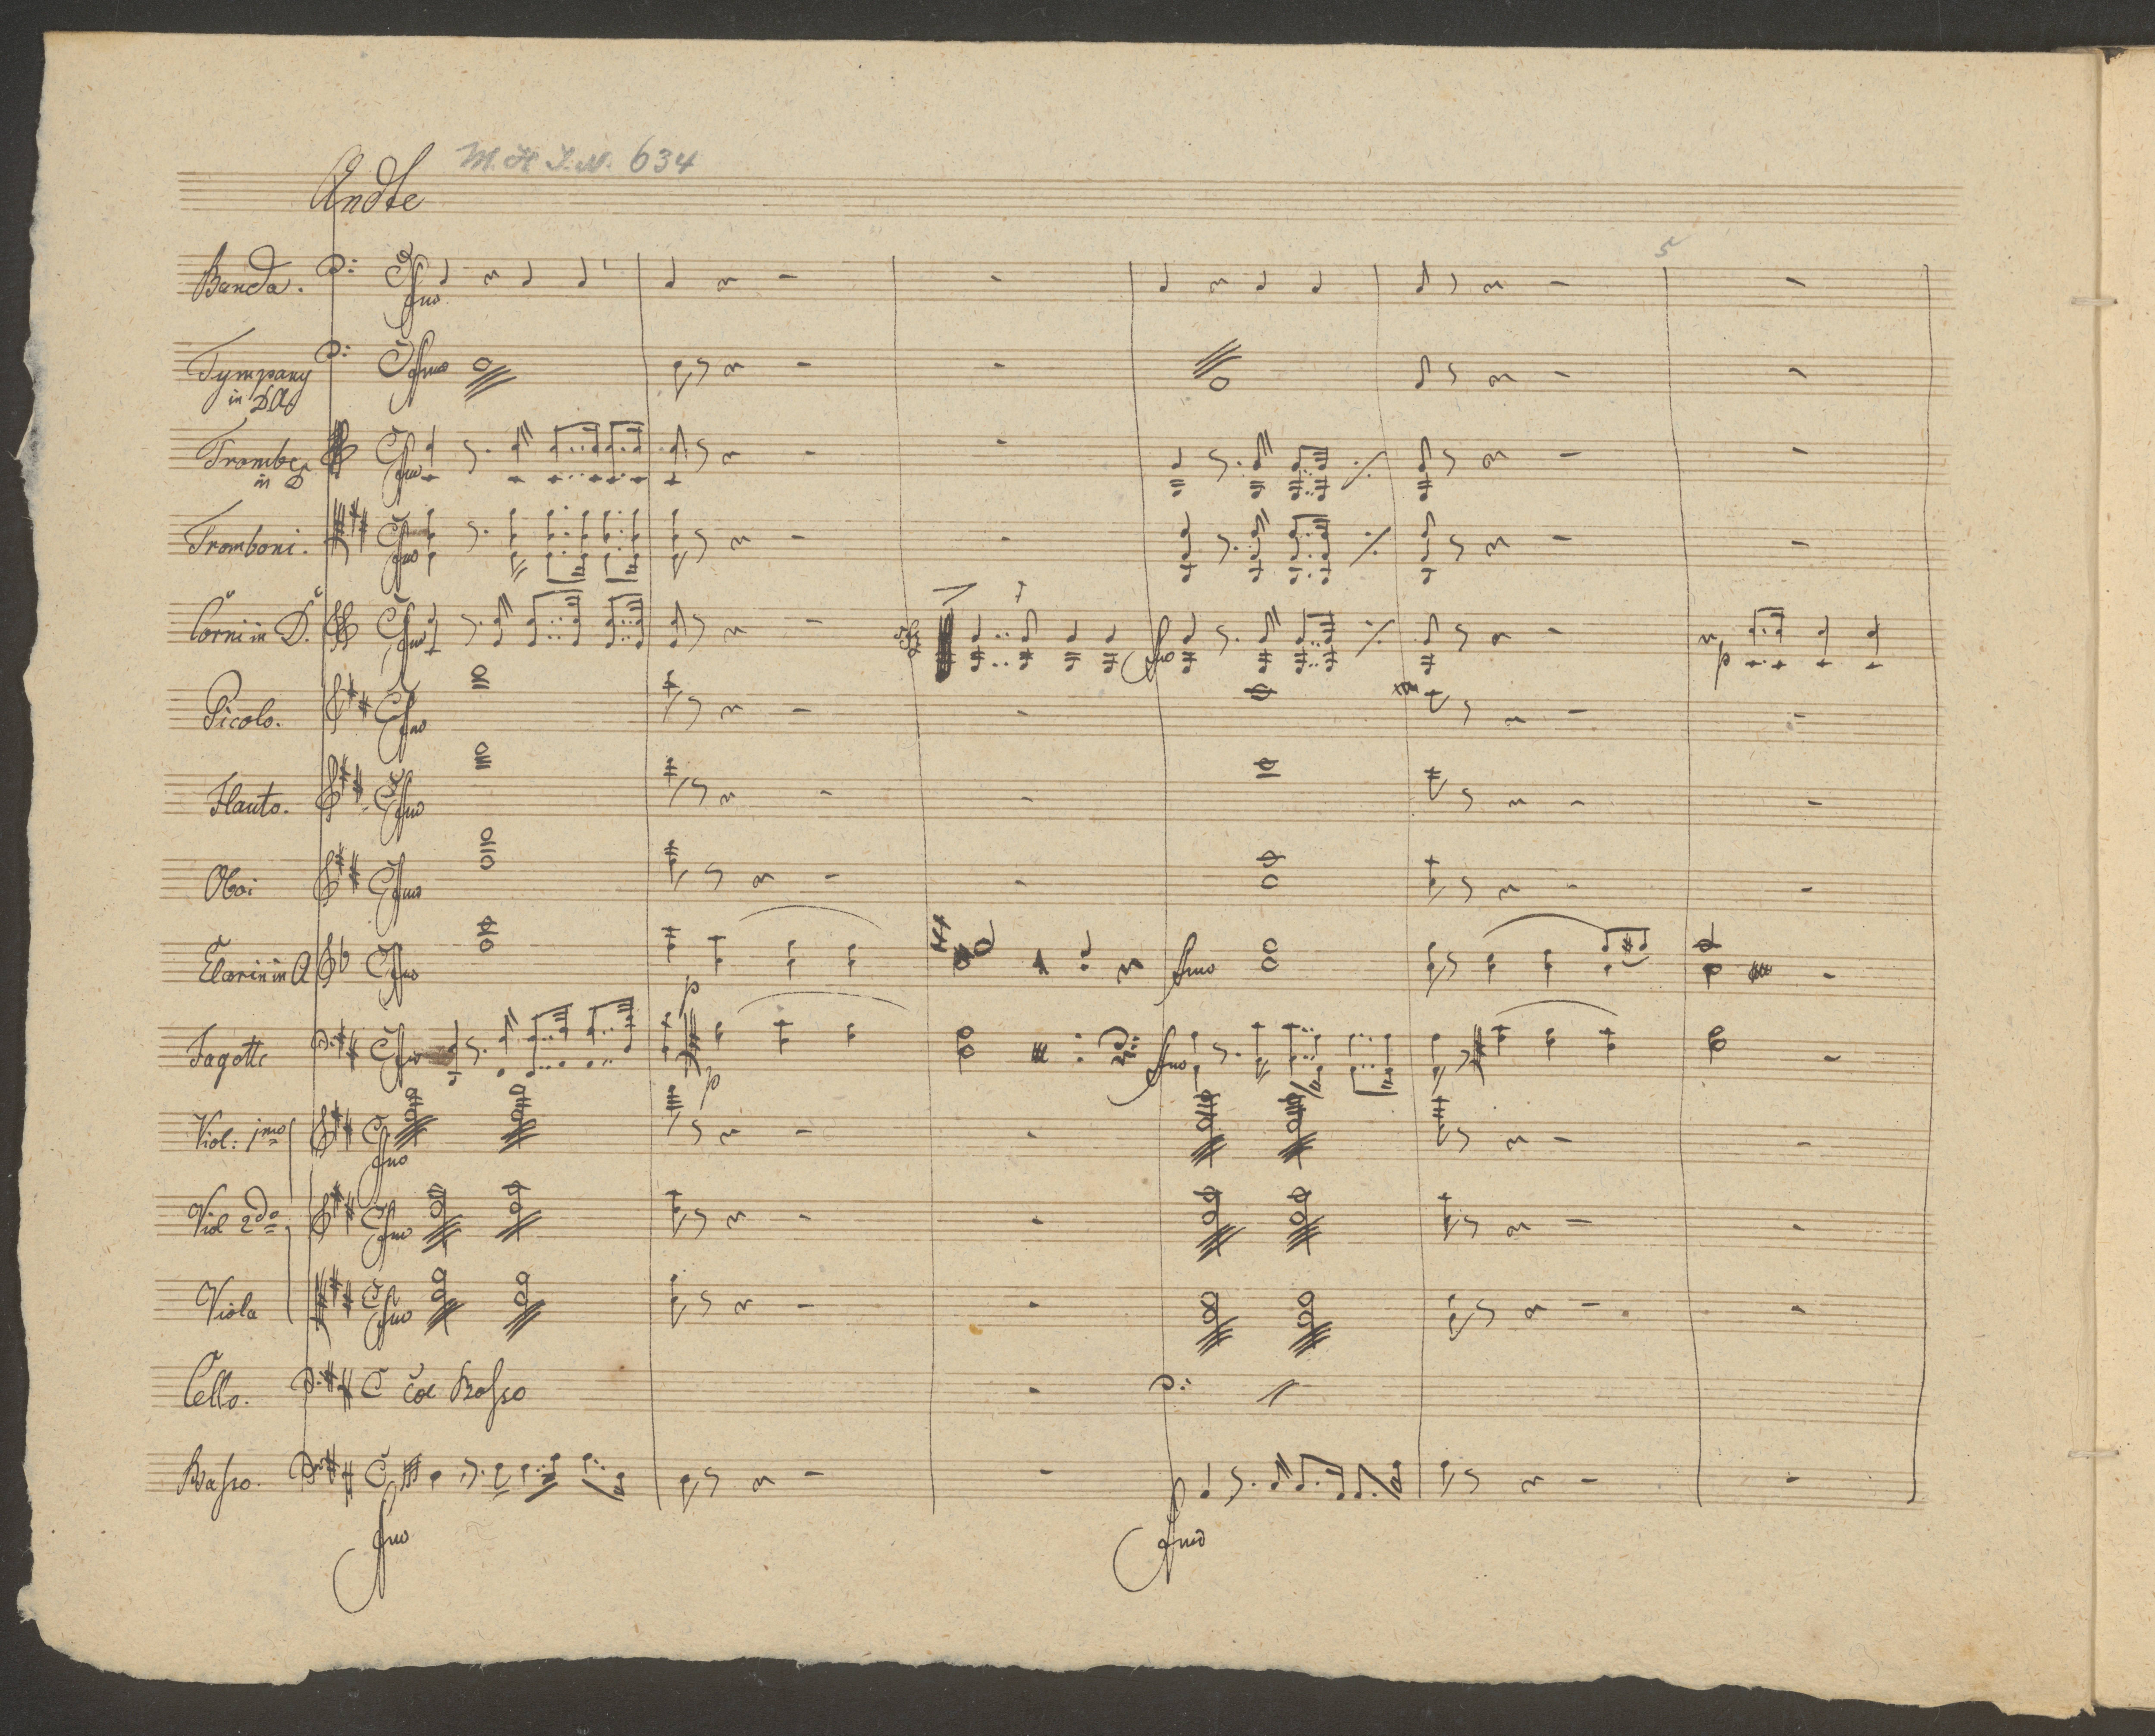 M. H I. N. 634
Andte
5
Banda.
ffmo
Tympany
in DA
ffmo
Trombe
in D
ffmo
Tromboni.
ffmo
Corni in D.
ffmo
ffmo
p
Picolo.
ffmo
Flauto.
ffmo
Oboi
ffmo
Clarin in A
ffmo
p
ffmo
Fagotti
ffmo
p
ffmo
Viol: jmo
ffmo
Viol 2do
ffmo
Viola
ffmo
Cello.
Col Basso
Basso.
ffmo
ffmo